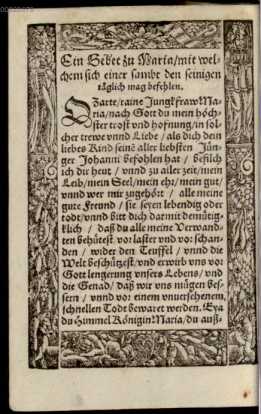 Ein Gebet zu Maria/mit wel-
chem sich einer sambt den seinigen
täglich mag befehlen.
O Zarte/raine Jungkfraw Ma-
ria/nach Gott du mein höch-
ster trost vnd hofnung/in sol-
cher trewe vnnd Liebe / als dich dein
liebes Kind seinē aller liebsten Jün-
ger Johanni befohlen hat / befilch
ich dir heut / vnnd zu ailer zeit/mein
Leib/mein Seel/mein ehr/mein gut/
vnnd wer mir zugehört / alle meine
gute Freund / sie seyen lebendig oder
todt/vnnd bitt dich darmit demütig-
klich / daß du alle meine Verwand-
ten behütest vor laster vnd vor schan-
den / wider den Teuffel / vnnd die
Welt beschützest/vnd erwirb vns vor
Gott lengerung vnsers Lebens/vnd
die Genad/ daß wir vns mügen bes-
sern / vnnd vor einem vnuersehenem,
schnellen Todt bewaret werden. Eya
du Himmel Königin Maria/du auß-